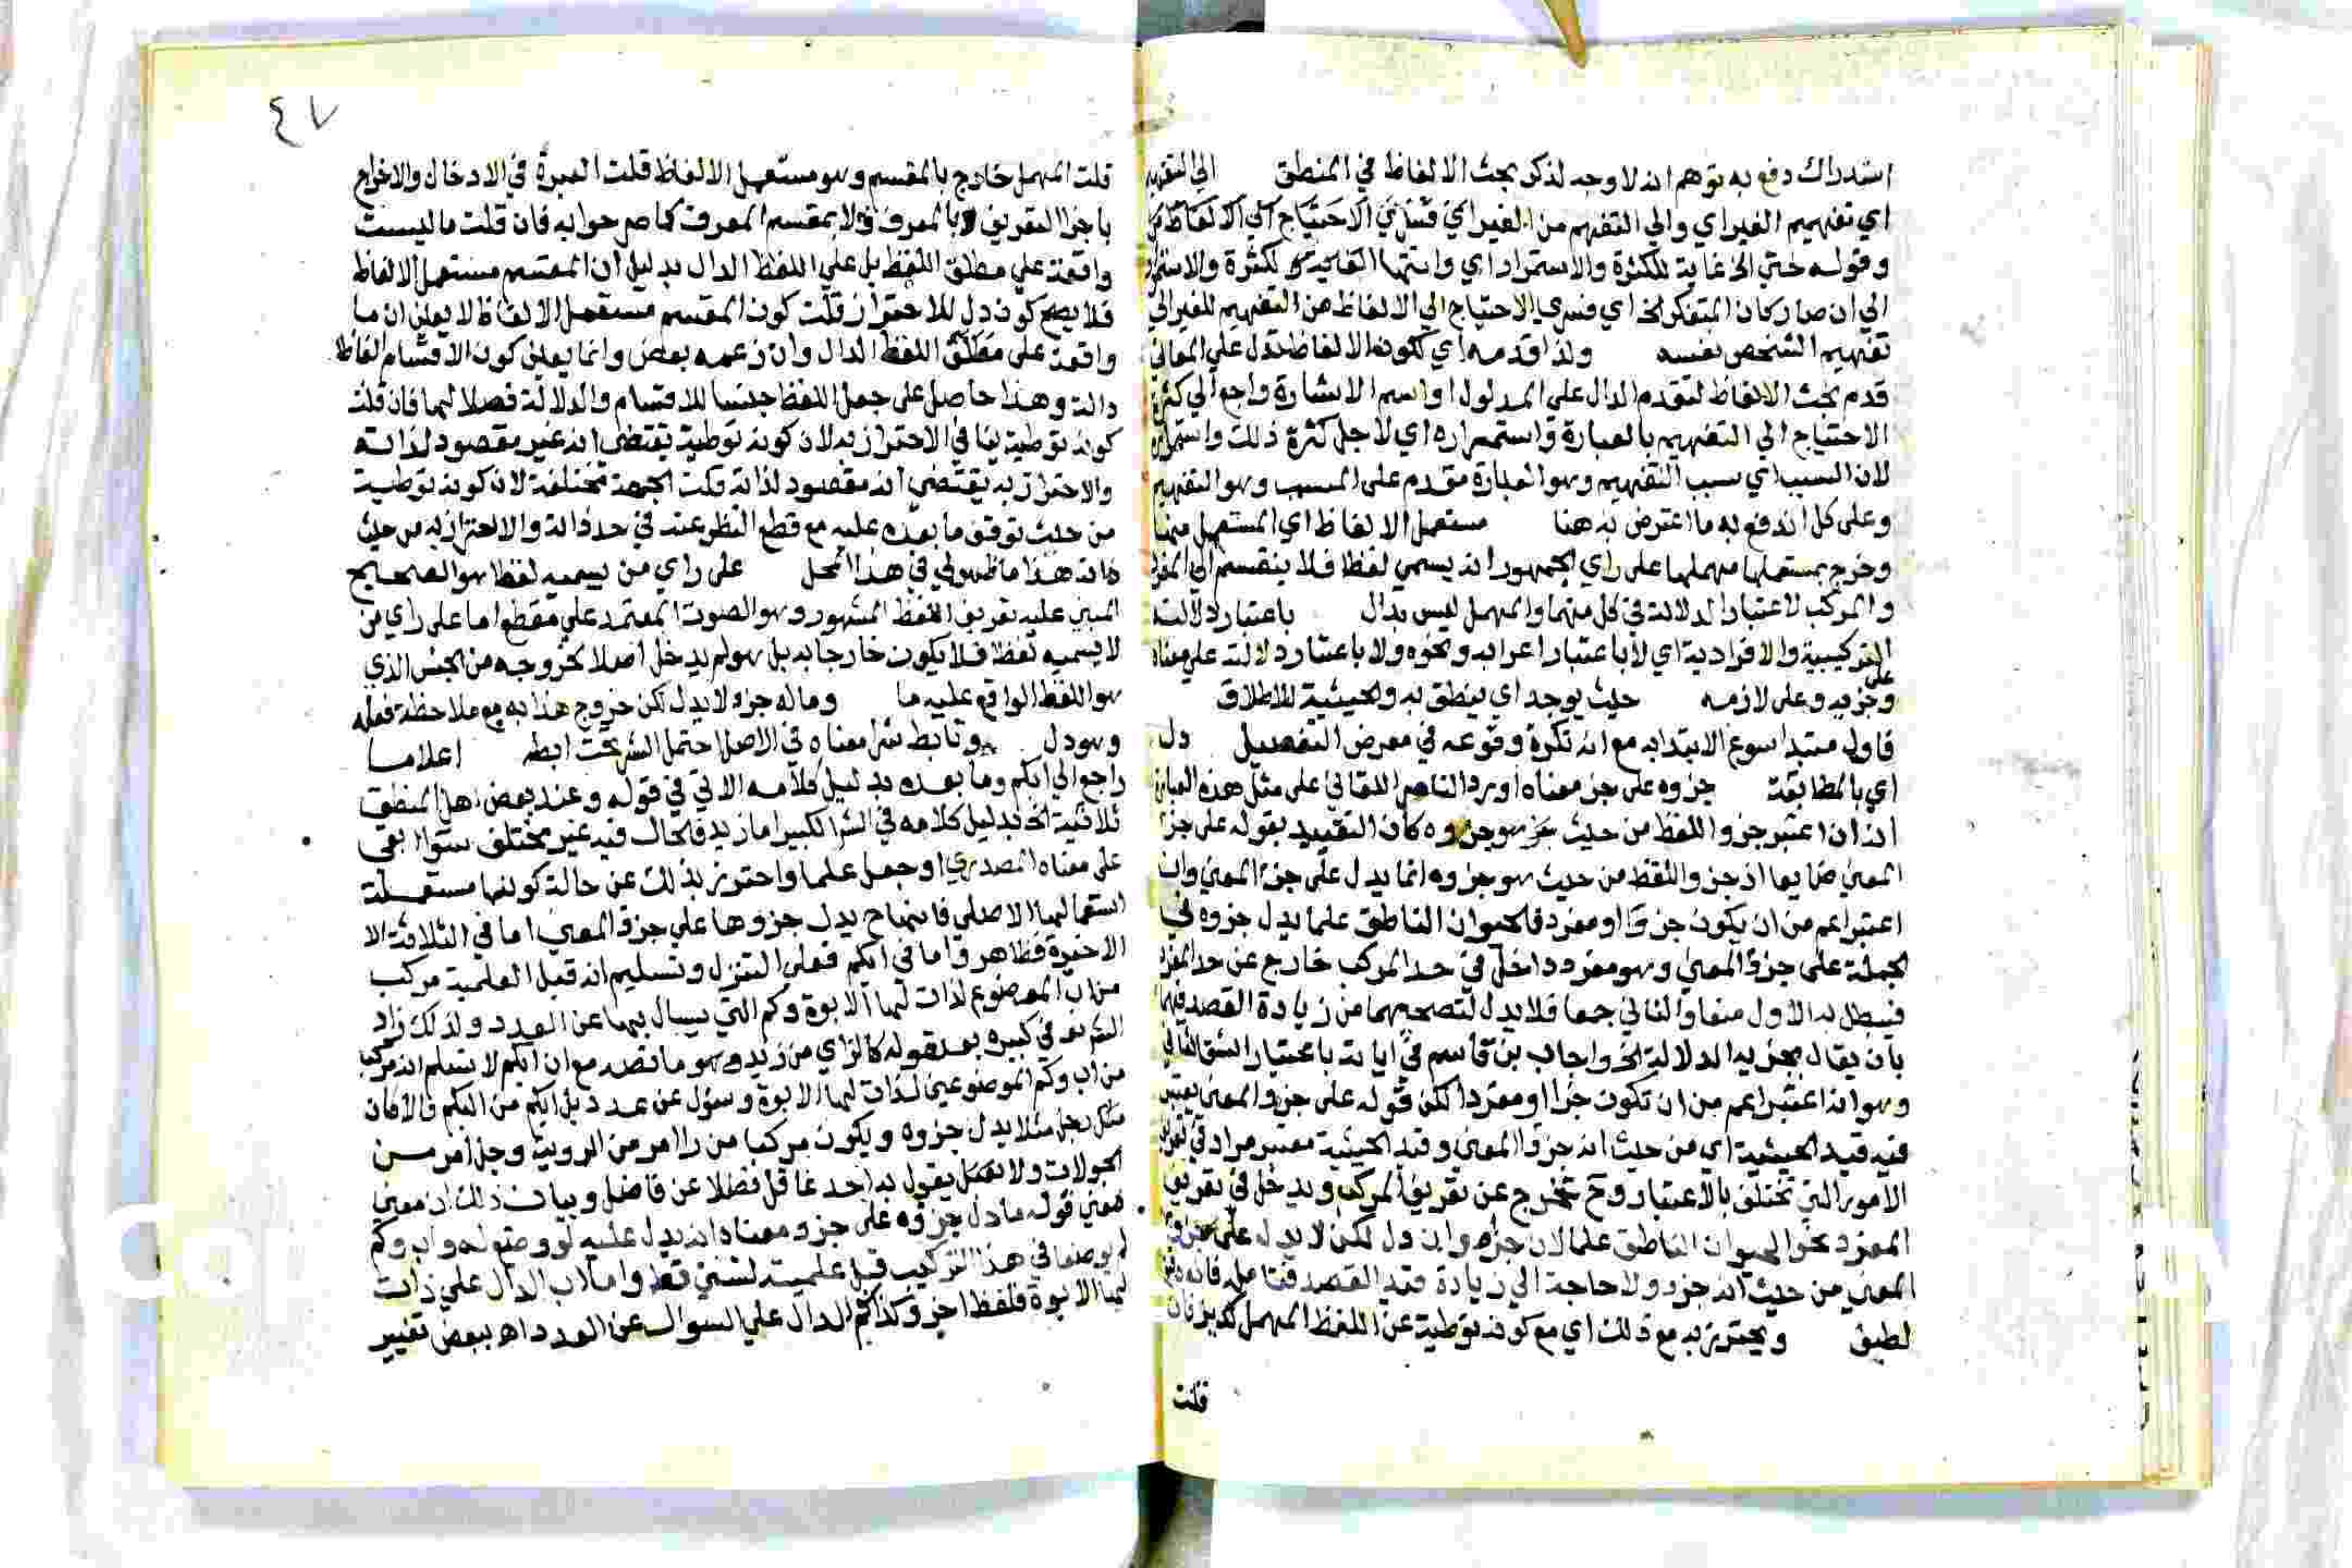 استدراك دفع به توهم انه لا وجه لذكر بحث الالفاظ في المنطق الي التفهيم
اي تفهيم الغير اي والي التفهم من الغير اي فسري الاحتياج الي الالفاظ
وقوله حتي الخ غاية للكثرة والاستمرار اي وانتها الكثرة والاستمرار
الي ان صار كان المتفكر الخ اي فسري الاحتياج الي الالفاظ من التفهيم للغير الي
تفهيم الشخص نفسه ولذا قدمه اي لكون الالفاظ تدل علي المعاني
قدم بحث الالفاظ لتقدم الدال علي المدلول او اسم الاشارة راجع الي كثرة
الاحتياج الي التفهيم بالعبارة واستمراره اي لاجل كثرة ذلك واستمراره
لان السبب اي سبب التفهيم وهو العبارة مقدم علي المسبب وهو التفهيم
وعلى كل اندفع به ما اعترض به هنا مستعمل الالفاظ اي المستعمل منها
وخرج بمستعملها مهملها على راي الجمهور انه يسمي لفظا فلا ينقسم الي المفرد
والمركب لاعتبار الدلالة في كل منهما والمهمل ليس بدال باعتبار دلالته
التركيبية والافرادية اي لا باعتبار اعرابه ونحوه ولا باعتبار دلالته علي معناه
وجزيه وعلى لازمه حيث يوجد اي ينطق به والحيثية للاطلاق
فاول مبتدا سوغ الابتدا به مع انه نكرة وقوعه في معرض التفصيل دل
اي بالمطابقة جزوه على جز معناه اورد الناصر اللقاني على مثل هذه العبارة
انه ان اعتبر جزو اللفظ من حيث هو جزوه كان التقييد بقوله على جز
المعني ضايعا اذ جزو اللفظ من حيث هو جزوه انما يدل على جزء المعني وان
اعتبر اعم من ان يكون جزوا او مفردا فالحيوان الناطق علما يدل جزوه في
الجملة على جزؤ المعني وهو مفرد داخل في حد المركب خارج عن حد المفرد
فيبطل به الاول منعا والثاني جمعا فلا بد لتصحيحهما من زيادة القصد فيهما
بان يقال بجزيه الدلالة الخ واجاب بن قاسم في اياته باختيار الشق الثاني
وهو انه اعتبر اعم من ان تكون جزا او مفردا لكن قوله على جزو المعني يعتبر
فيه قيد الحيثية اي من حيث انه جزؤ المعني وقيد الحيثية معتبر مراد في تعريف
الامور التي تختلف بالاعتبار وح تخرج عن تعريف المركب ويدخل في تعريف
المفرد نحو الحيوان الناطق علما لان جزاه وان دل لكن لا يدل على جزؤ
المعني من حيث انه جزو ولا حاجة الي زيادة قيد القصد فتامله فانه
لطيف ويحترز به مع ذلك اي مع كونه توطية عن اللفظ المهمل كديز فان
قلت
٤٧
قلت المهمل خارج بالمقسم وهو مستعمل الالفاظ قلت العبرة في الادخال والاخراج
باجزا التعريف لا بالمعرف ولا بمقسم المعرف كما صرحوا به فان قلت ما ليست
واقعة علي مطلق اللفظ بل علي اللفظ الدال بدليل ان المقسم مستعمل الالفاظ
فلا يصح كون دل للاحتراز قلت كون المقسم مستعمل الالفاظ لا يعين ان ما
واقعة على مطلق اللفظ الدال وان زعمه بعض وانما يعني كون الاقسام الفاظا
دالة وهذا حاصل على جعل اللفظ جنسا للاقسام والدلالة فصلا لها فان قلت
كونه توطية ينافي الاحتراز به لان كونه توطية يقتضي انه غير مقصود لذاته
والاحتراز به يقتضي انه مقصود لذاته قلت الجهة مختلفة لان كونه توطية
من حيث توقف ما بعده عليه مع قطع النظر عنه في حد ذاته والاحتراز به من حيث
ذاته هذا ما ظهر لي في هذا المحل على راي من يسميه لفظا هو الصحيح
المبني عليه تعريف اللفظ المشهور وهو الصوت المعتمد علي مقطع اما على راي من
لا يسميه لفظا فلا يكون خارجا به بل هو لم يدخل اصلا لخروجه من الجنس الذي
هو اللفظ الواقع عليه ما وماله جزو لا يدل لكن خروج هذا به مع ملاحظة فعله
وهو دل وتابط شرا معناه في الاصل احتمل الشر تحت ابطه اعلاما
راجع الي ابكم وما بعده بدليل كلامه الاتي في قوله وعند بعض اهل المنطق
ثلاثية الخ بدليل كلامه في الشر الكبير اما زيد فالحال فيه غير مختلف سوا ابقي
على معناه المصدري او جعل علما واحترز بذلك عن حالة كونها مستعملة
استعمالها الاصلي فانها ح يدل جزوها علي جزؤ المعني اما في الثلاثة الا
الاخيرة فظاهر واما في ابكم فعلي التنزل وتسليم انه قبل العلمية مركب
من اب الموضوع لذات لها الابوة وكم التي يسال بها عن العدد ولذلك زاد
في كبيره بعد قوله كالزاي من زيد وهو ما نصه مع ان ابكم لا نسلم انه مركب
من اب وكم الموضوعين لذات لها الابوة وسؤل عن عدد بل ابكم من البكم والا كان
مثل رجل مثلا يدل جزوه ويكون مركبا من را امر من الروية وجل امر من
الجولات ولا يقول به احد عاقل فضلا عن فاضل وبيان ذلك ان معني
معني قوله ما دل جزوه على جزو معناه انه يدل عليه لو وضعوله واب وكم
لم يوضعا في هذا التركيب قبل علميته لشيئ قط واما اب الدال علي ذات
لها الابوة فلفظ اخر وكذا كم الدال علي السوال عن العدد اه ببعض تغيير